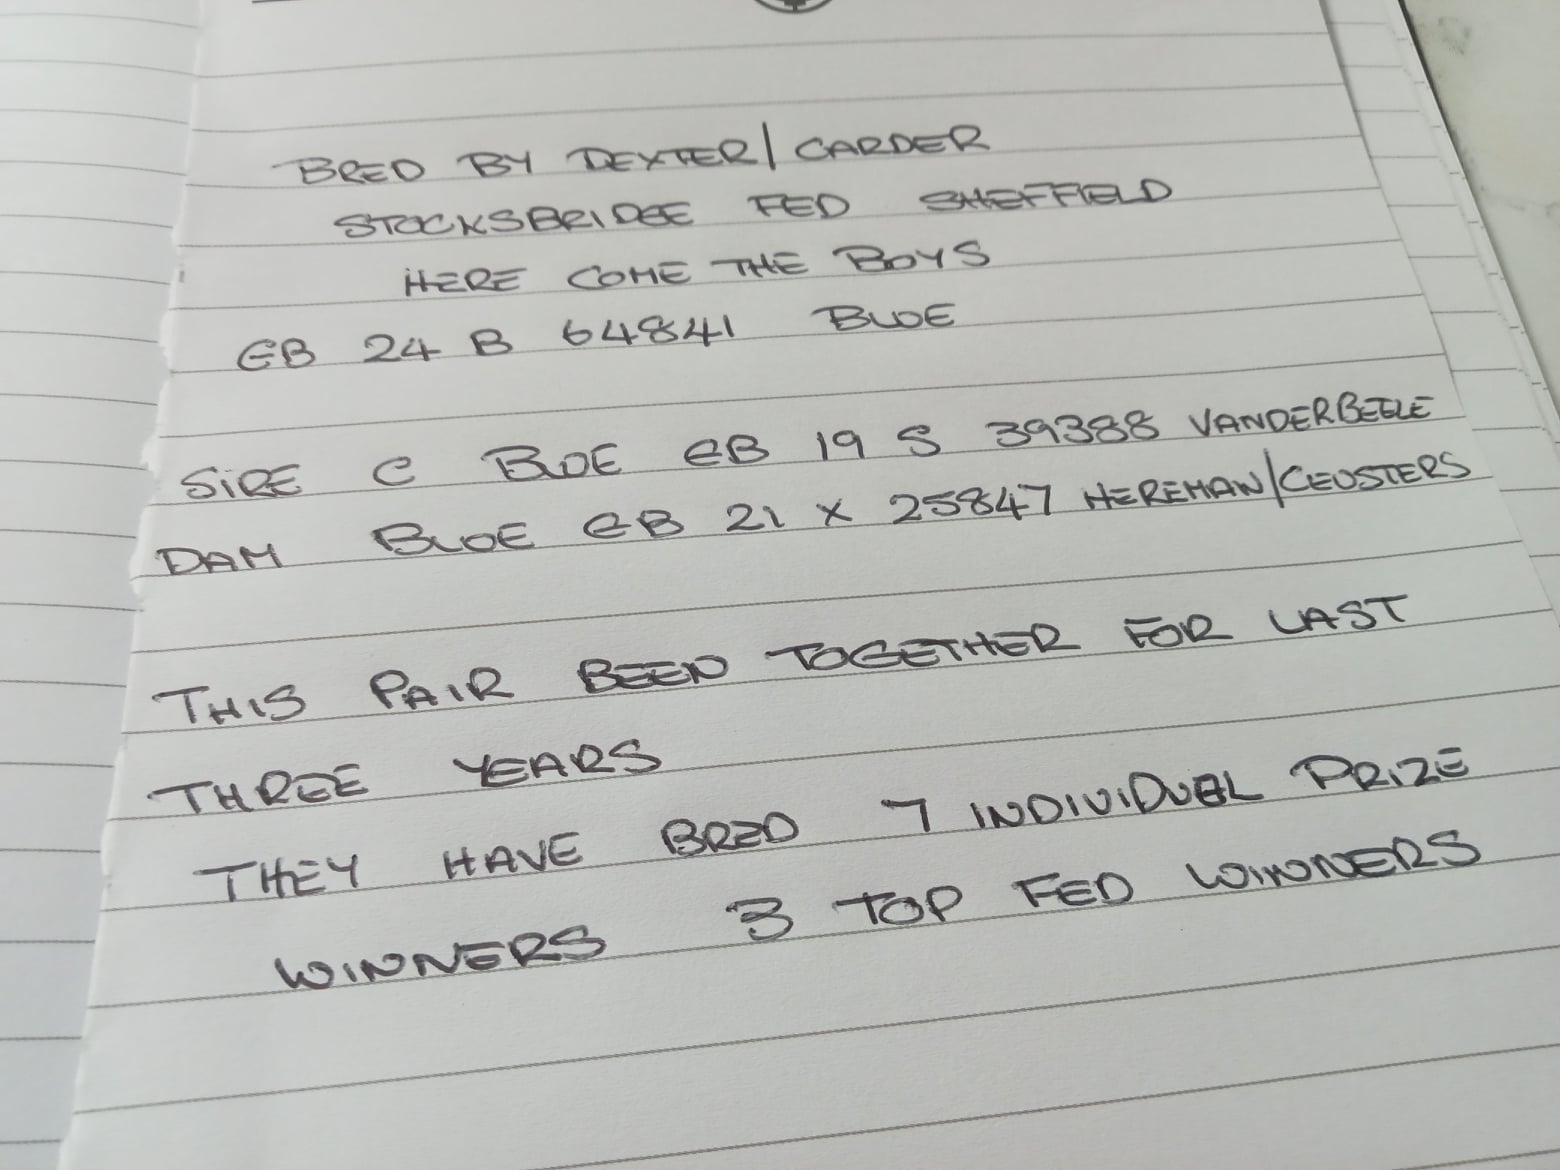 BRED BY DEXTER/CARDER
STOCKSBRIDGE FED SHEFFIELD
HERE COME THE BOYS
GB 24 B 64841 BLUE
SIRE C BLUE GB 19 S 39388 VANDERBEELE
DAM BLUE GB 21 X 25847 HEREMAN/CEUSTERS
THIS PAIR BEEN TOGETHER FOR LAST
THREE YEARS
THEY HAVE BRED 7 INDIVIDUAL PRIZE
WINNERS 3 TOP FED WINNERS